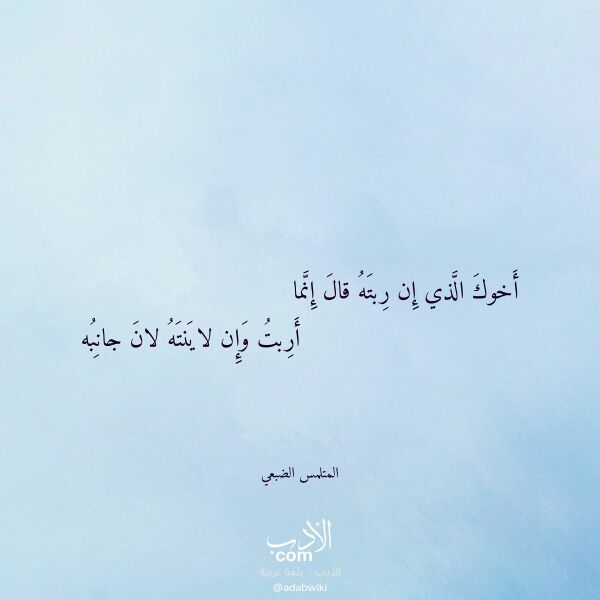 أَخوكَ الَّذي إِن رِبتَهُ قالَ إِنَّما
أَرِبتُ وَإِن لايَنتَهُ لانَ جانِبُه
المتلمس الضبعي
الأدب
com
الأدب .. بلغة عربية
@adabwiki